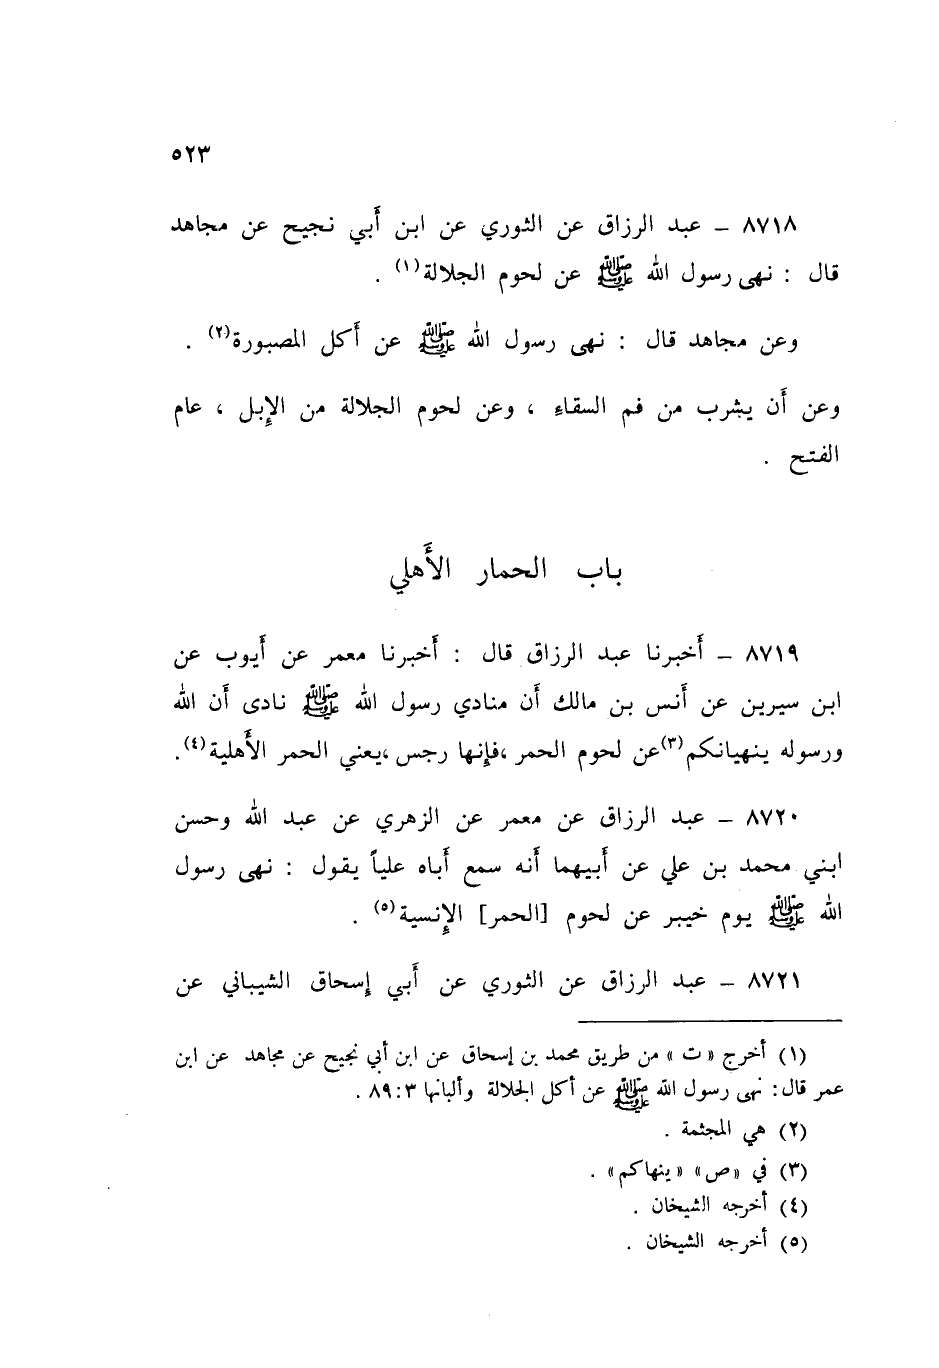 ٥٢٣
٨٧١٨ – عبد الرزاق عن الثوري عن ابن أَبي نجيح عن مجاهد
قال : نهى رسول الله ﷺ عن لحوم الجلالة(١) .
وعن مجاهد قال : نهى رسول الله ﷺ عن أَكل المصبورة(٢) .
وعن أَن يشرب من فم السقاء ، وعن لحوم الجلالة من الإِبل ، عام
الفتح .
باب الحمار الأَهلي
٨٧١٩ – أَخبرنا عبد الرزاق قال : أَخبرنا معمر عن أَيوب عن
ابن سيرين عن أَنس بن مالك أَن منادي رسول الله ﷺ نادى أَن الله
ورسوله ينهيانكم(٣) عن لحوم الحمر ، فإِنها رجس ، يعني الحمر الأَهلية(٤).
٨٧٢٠ – عبد الرزاق عن معمر عن الزهري عن عبد الله وحسن
ابني محمد بن علي عن أَبيهما أَنه سمع أَباه علياً يقول : نهى رسول
الله ﷺ يوم خيبر عن لحوم [الحمر] الإِنسية(٥) .
٨٧٢١ – عبد الرزاق عن الثوري عن أَبي إِسحاق الشيباني عن
(١) أخرج «ت» من طريق محمد بن إسحاق عن ابن أبي نجيح عن مجاهد عن ابن
عمر قال: نهى رسول الله ﷺ عن أكل الجلالة وألبانها ٣: ٨٩ .
(٢) هي المجثمة .
(٣) في «ص» «ينهاكم» .
(٤) أخرجه الشيخان .
(٥) أخرجه الشيخان .